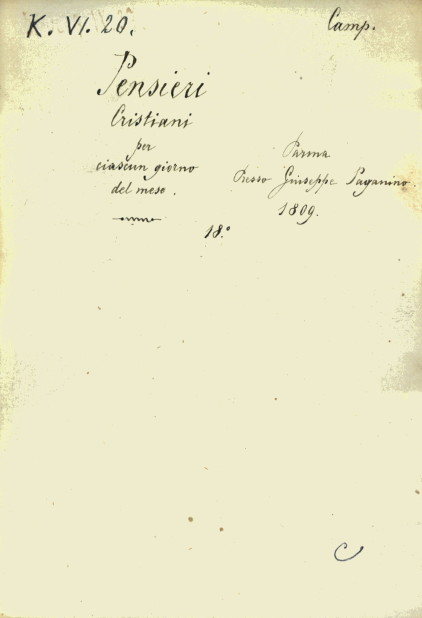 K. VI. 20.
Camp.
Pensieri
Cristiani
per
ciascun giorno
del mese.
Parma
Presso Giuseppe Paganino.
1809.
18.º
C